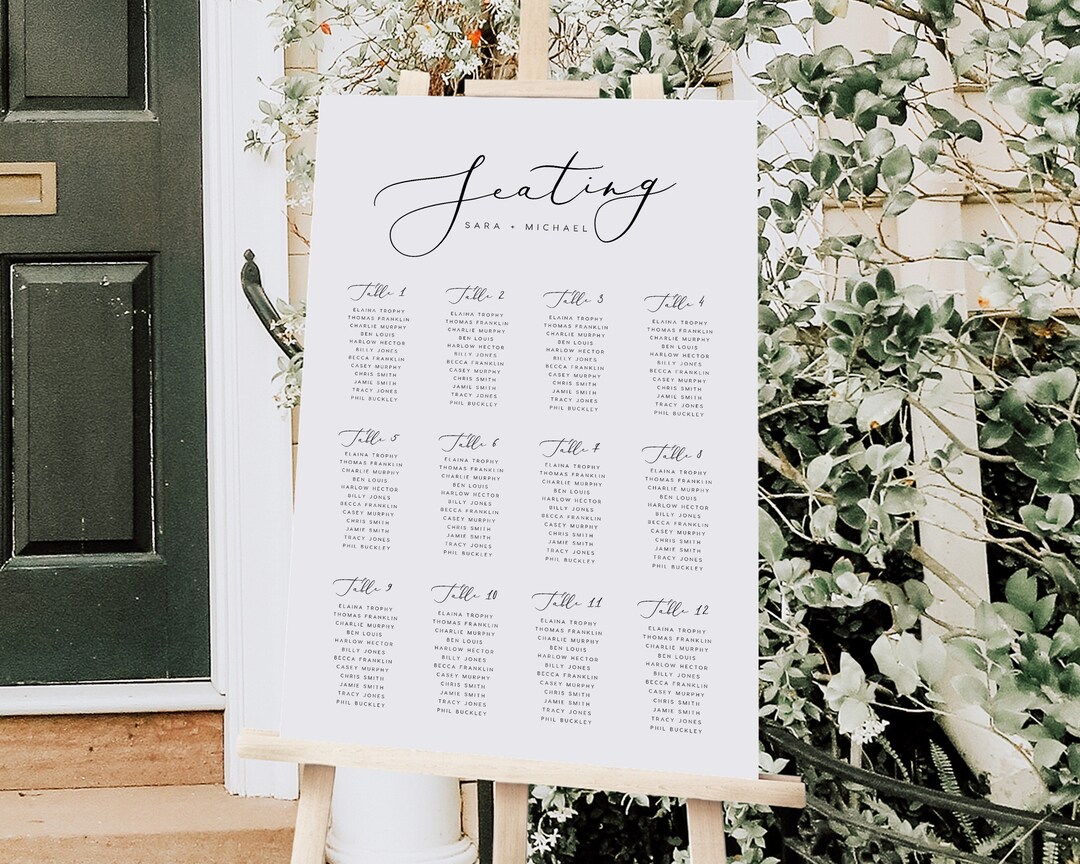 Seating
SARA + MICHAEL
Table 1
ELAINA TROPHY
THOMAS FRANKLIN
CHARLIE MURPHY
BEN LOUIS
HARLOW HECTOR
BILLY JONES
BECCA FRANKLIN
CASEY MURPHY
CHRIS SMITH
JAMIE SMITH
TRACY JONES
PHIL BUCKLEY
Table 2
ELAINA TROPHY
THOMAS FRANKLIN
CHARLIE MURPHY
BEN LOUIS
HARLOW HECTOR
BILLY JONES
BECCA FRANKLIN
CASEY MURPHY
CHRIS SMITH
JAMIE SMITH
TRACY JONES
PHIL BUCKLEY
Table 3
ELAINA TROPHY
THOMAS FRANKLIN
CHARLIE MURPHY
BEN LOUIS
HARLOW HECTOR
BILLY JONES
BECCA FRANKLIN
CASEY MURPHY
CHRIS SMITH
JAMIE SMITH
TRACY JONES
PHIL BUCKLEY
Table 4
ELAINA TROPHY
THOMAS FRANKLIN
CHARLIE MURPHY
BEN LOUIS
HARLOW HECTOR
BILLY JONES
BECCA FRANKLIN
CASEY MURPHY
CHRIS SMITH
JAMIE SMITH
TRACY JONES
PHIL BUCKLEY
Table 5
ELAINA TROPHY
THOMAS FRANKLIN
CHARLIE MURPHY
BEN LOUIS
HARLOW HECTOR
BILLY JONES
BECCA FRANKLIN
CASEY MURPHY
CHRIS SMITH
JAMIE SMITH
TRACY JONES
PHIL BUCKLEY
Table 6
ELAINA TROPHY
THOMAS FRANKLIN
CHARLIE MURPHY
BEN LOUIS
HARLOW HECTOR
BILLY JONES
BECCA FRANKLIN
CASEY MURPHY
CHRIS SMITH
JAMIE SMITH
TRACY JONES
PHIL BUCKLEY
Table 7
ELAINA TROPHY
THOMAS FRANKLIN
CHARLIE MURPHY
BEN LOUIS
HARLOW HECTOR
BILLY JONES
BECCA FRANKLIN
CASEY MURPHY
CHRIS SMITH
JAMIE SMITH
TRACY JONES
PHIL BUCKLEY
Table 8
ELAINA TROPHY
THOMAS FRANKLIN
CHARLIE MURPHY
BEN LOUIS
HARLOW HECTOR
BILLY JONES
BECCA FRANKLIN
CASEY MURPHY
CHRIS SMITH
JAMIE SMITH
TRACY JONES
PHIL BUCKLEY
Table 9
ELAINA TROPHY
THOMAS FRANKLIN
CHARLIE MURPHY
BEN LOUIS
HARLOW HECTOR
BILLY JONES
BECCA FRANKLIN
CASEY MURPHY
CHRIS SMITH
JAMIE SMITH
TRACY JONES
PHIL BUCKLEY
Table 10
ELAINA TROPHY
THOMAS FRANKLIN
CHARLIE MURPHY
BEN LOUIS
HARLOW HECTOR
BILLY JONES
BECCA FRANKLIN
CASEY MURPHY
CHRIS SMITH
JAMIE SMITH
TRACY JONES
PHIL BUCKLEY
Table 11
ELAINA TROPHY
THOMAS FRANKLIN
CHARLIE MURPHY
BEN LOUIS
HARLOW HECTOR
BILLY JONES
BECCA FRANKLIN
CASEY MURPHY
CHRIS SMITH
JAMIE SMITH
TRACY JONES
PHIL BUCKLEY
Table 12
ELAINA TROPHY
THOMAS FRANKLIN
CHARLIE MURPHY
BEN LOUIS
HARLOW HECTOR
BILLY JONES
BECCA FRANKLIN
CASEY MURPHY
CHRIS SMITH
JAMIE SMITH
TRACY JONES
PHIL BUCKLEY